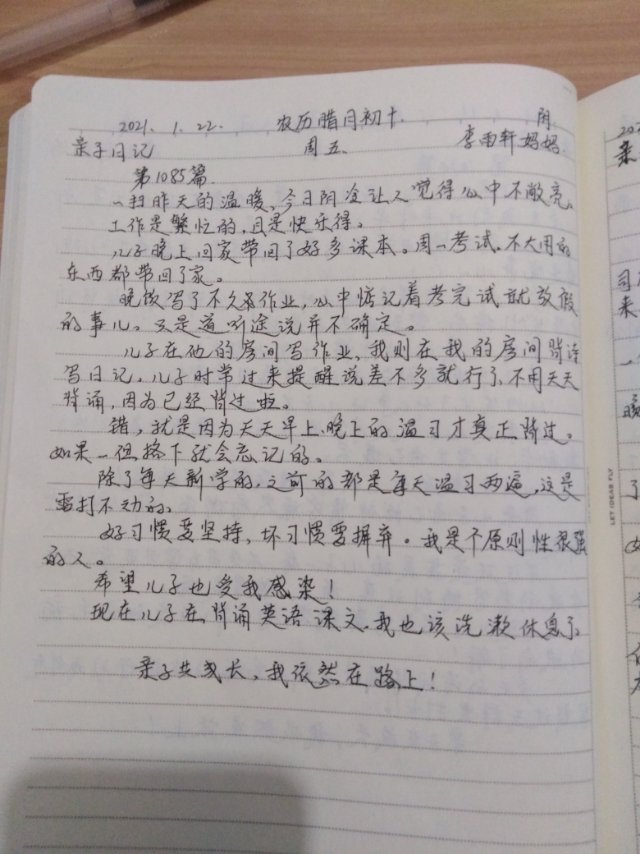 2021. 1. 22. 农历腊月初十. 阴.
亲子日记 周五. 李雨轩妈妈
第1085篇.
一扫昨天的温暖，今日阴冷让人觉得心中不敞亮。
工作是繁忙的，且是快乐得。
儿子晚上回家带回了好多课本。周一考试。不大用的
东西都带回了家。
晚饭写了不久作业，心中惦记着考完试就放假
的事儿。又是道听途说并不确定。
儿子在他的房间写作业，我则在我的房间背诗
写日记。儿子时常过来提醒说差不多就行了，不用天天
背诵，因为已经背过啦。
错，就是因为天天早上、晚上的温习才真正背过。
如果一但撂下就会忘记的。
除了每天新学的，之前的都是每天温习两遍，这是
雷打不动的。
好习惯要坚持，坏习惯要摒弃。我是个原则性很强
的人。
希望儿子也受我感染！
现在儿子在背诵英语课文，我也该洗漱休息了。
亲子共成长，我依然在路上！
LET IDEAS FLY
202
亲
司
来